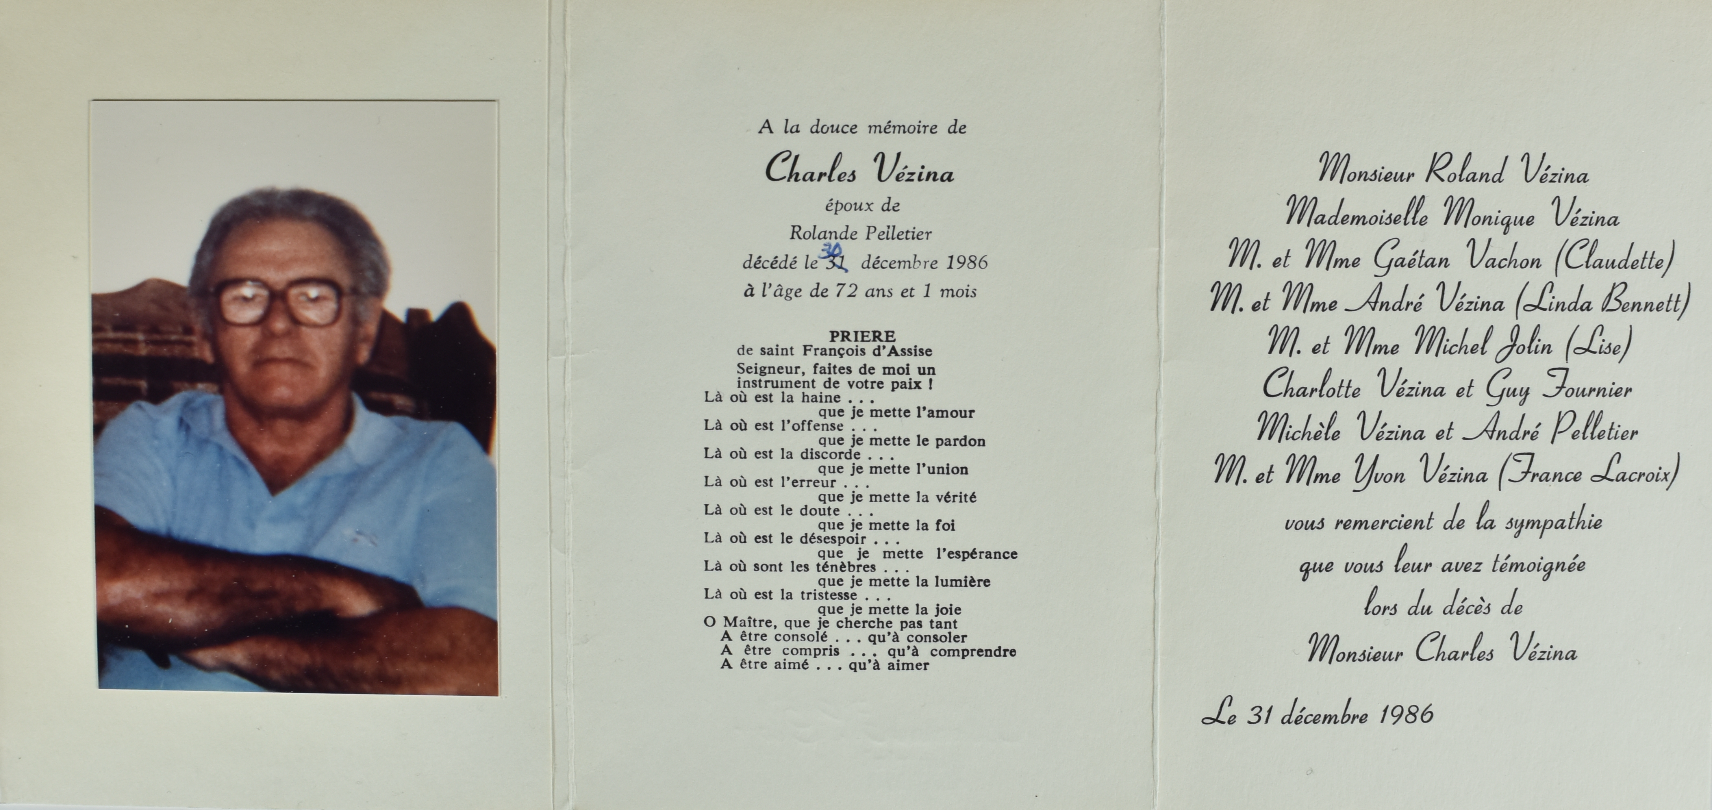 A la douce mémoire de
Charles Vézina
époux de
Rolande Pelletier
30
décédé le 31 décembre 1986
à l'âge de 72 ans et 1 mois
PRIERE
de saint François d'Assise
Seigneur, faites de moi un
instrument de votre paix !
Là où est la haine . . .
que je mette l'amour
Là où est l'offense . . .
que je mette le pardon
Là où est la discorde . . .
que je mette l'union
Là où est l'erreur . . .
que je mette la vérité
Là où est le doute . . .
que je mette la foi
Là où est le désespoir . . .
que je mette l'espérance
Là où sont les ténèbres . . .
que je mette la lumière
Là où est la tristesse . . .
que je mette la joie
O Maître, que je cherche pas tant
A être consolé . . . qu'à consoler
A être compris . . . qu'à comprendre
A être aimé . . . qu'à aimer
Monsieur Roland Vézina
Mademoiselle Monique Vézina
M. et Mme Gaétan Vachon (Claudette)
M. et Mme André Vézina (Linda Bennett)
M. et Mme Michel Jolin (Lise)
Charlotte Vézina et Guy Fournier
Michèle Vézina et André Pelletier
M. et Mme Yvon Vézina (France Lacroix)
vous remercient de la sympathie
que vous leur avez témoignée
lors du décès de
Monsieur Charles Vézina
Le 31 décembre 1986